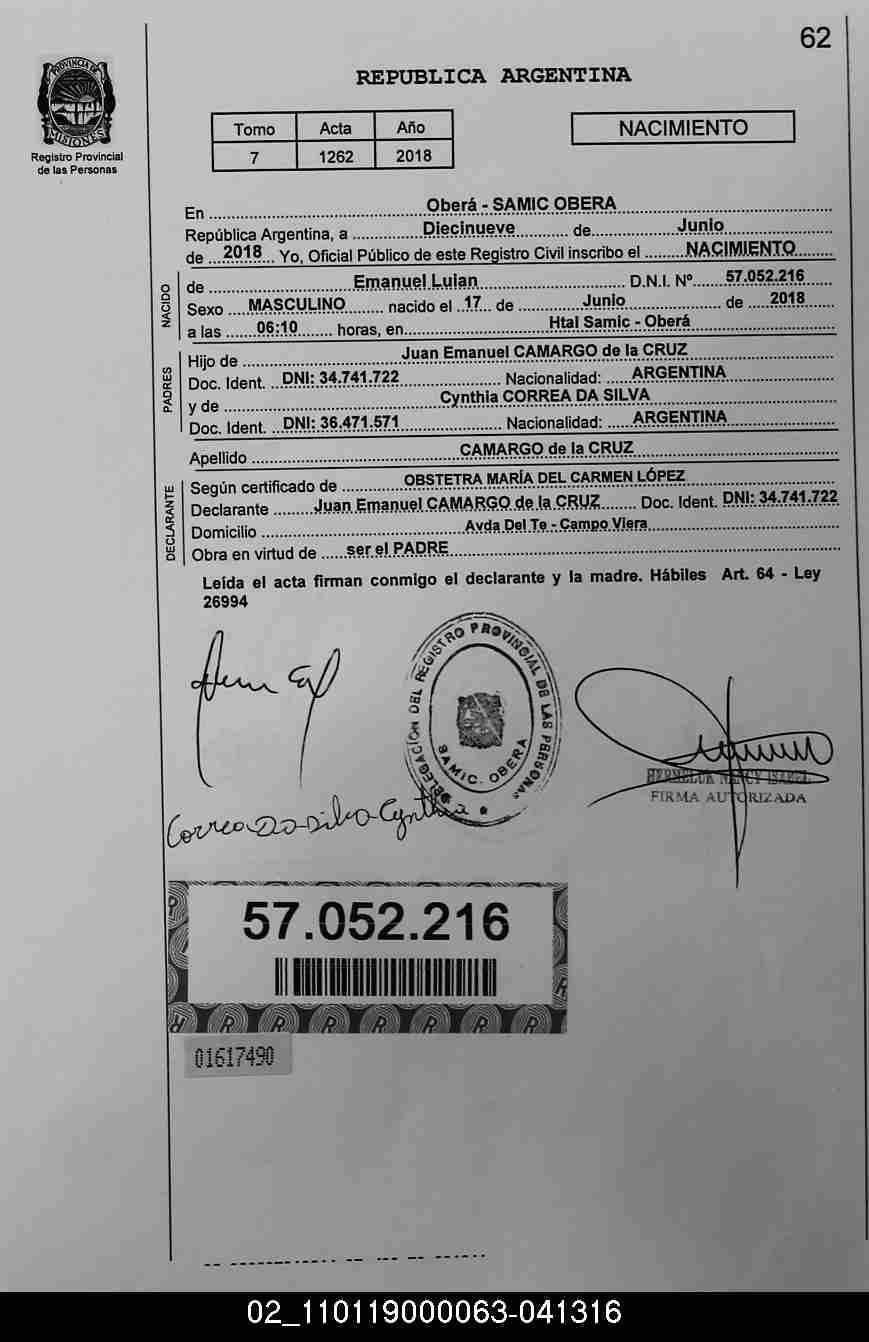 62
PROVINCIA DE
MISIONES
Registro Provincial
de las Personas
REPUBLICA ARGENTINA
Tomo Acta Año
7 1262 2018
NACIMIENTO
En Oberá - SAMIC OBERA
República Argentina, a Diecinueve de Junio
de 2018 Yo, Oficial Público de este Registro Civil inscribo el NACIMIENTO
NACIDO
de Emanuel Luian D.N.I. Nº 57.052.216
Sexo MASCULINO nacido el 17 de Junio de 2018
a las 06:10 horas, en Htal Samic - Oberá
PADRES
Hijo de Juan Emanuel CAMARGO de la CRUZ
Doc. Ident. DNI: 34.741.722 Nacionalidad: ARGENTINA
y de Cynthia CORREA DA SILVA
Doc. Ident. DNI: 36.471.571 Nacionalidad: ARGENTINA
Apellido CAMARGO de la CRUZ
DECLARANTE
Según certificado de OBSTETRA MARÍA DEL CARMEN LÓPEZ
Declarante Juan Emanuel CAMARGO de la CRUZ Doc. Ident. DNI: 34.741.722
Domicilio Avda Del Te - Campo Viera
Obra en virtud de ser el PADRE
Leída el acta firman conmigo el declarante y la madre. Hábiles Art. 64 - Ley
26994
DELEGACION DEL REGISTRO PROVINCIAL DE LAS PERSONAS
SAMIC. OBERA
NANCY ISABEL
FIRMA AUTORIZADA
Correa Da Silva Cynthia
57.052.216
R R R R R R R
01617490
02_110119000063-041316